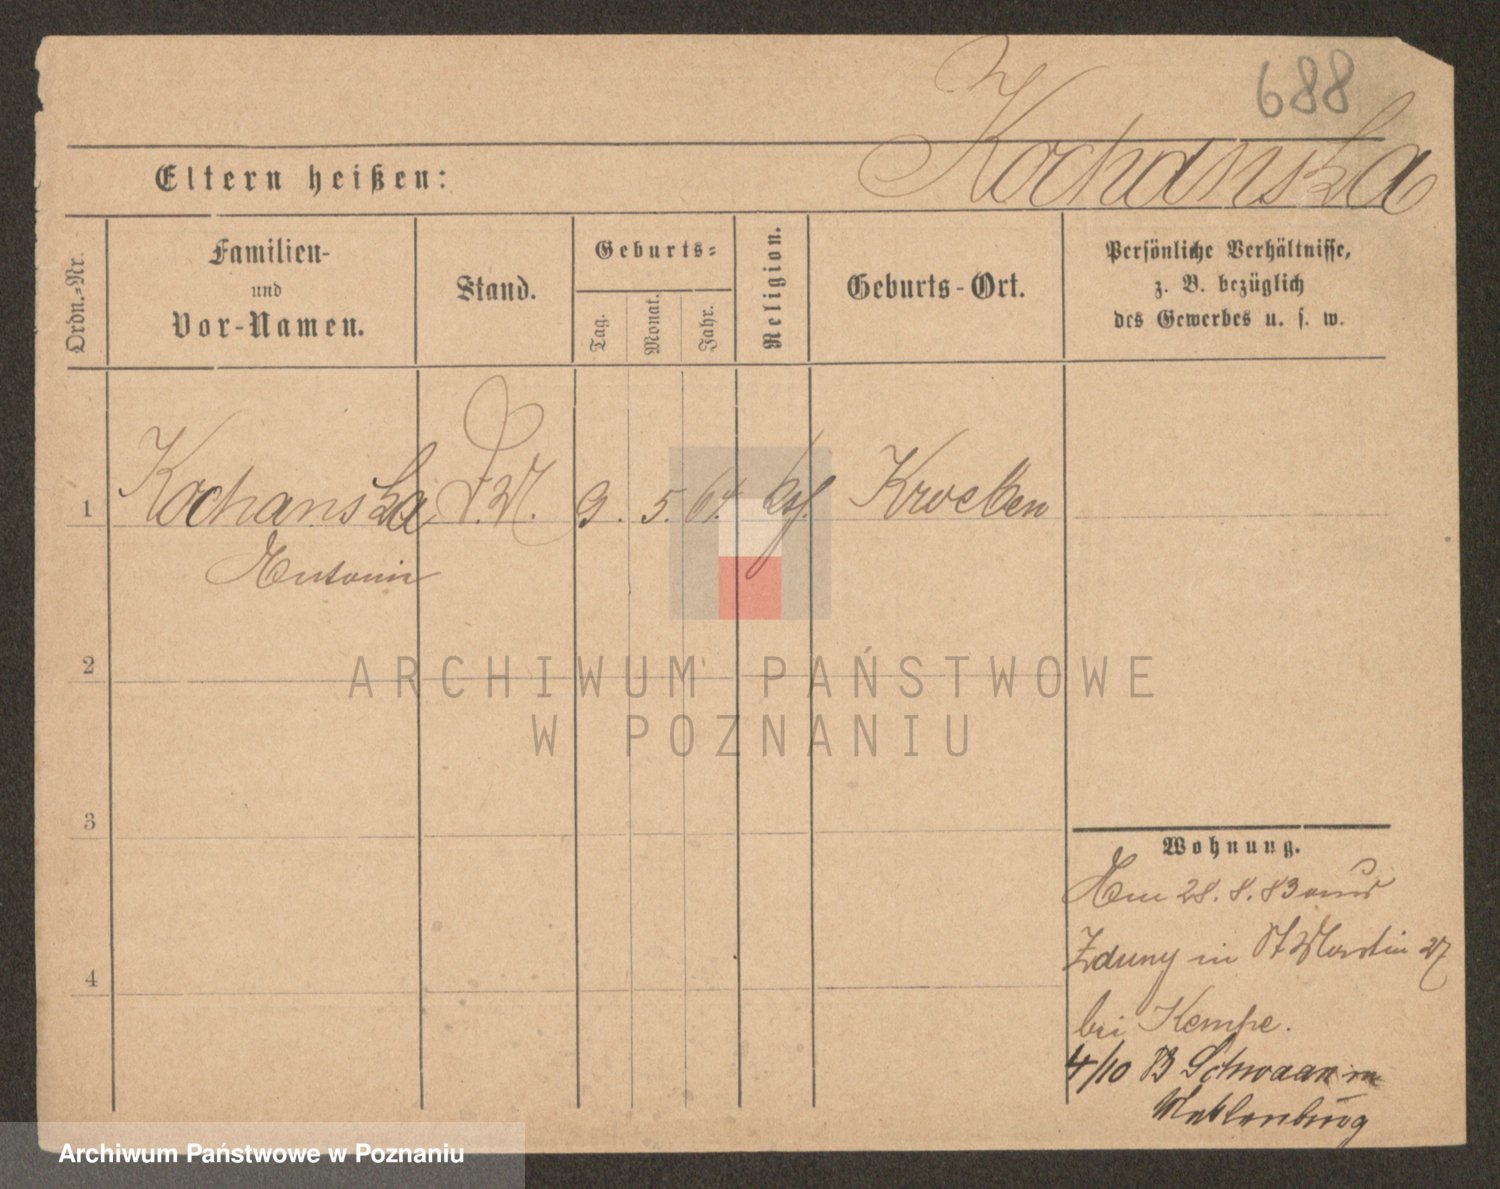 688
Kochanska
Eltern heißen:
Ordn.-Nr.
Familien-
und
Vor-Namen.
Stand.
Geburts-
Tag.
Monat.
Jahr.
Religion.
Geburts-Ort.
Persönliche Verhältnisse,
z. B. bezüglich
des Gewerbes u. s. w.
1
Kochanska
9. 5. 64.
Antonin
2
ARCHIWUM PAŃSTWOWE
W POZNANIU
3
4
Wohnung.
Am 28. 8. 83 aus
Zduny in St Martin 27
bei Kempe.
4/10 83 Schwaan in
Meklenburg
Archiwum Państwowe w Poznaniu